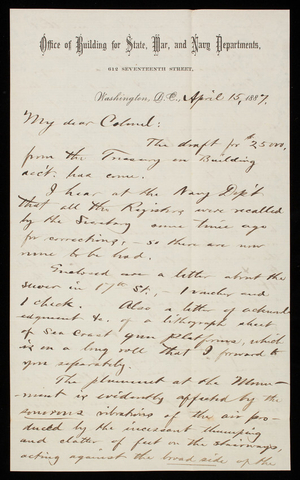 Office of Building for State, War, and Navy Departments,
612 SEVENTEENTH STREET,
Washington, D.C., April 15, 1887.
My dear Colonel:
The draft for $2500,
from the Treasury on Building
acct. has come.
I hear at the Navy Dep't
that all the Registers were recalled
by the Secretary some time ago
for corrections, - so there are now
none to be had.
Enclosed are a letter about the
sewer in 17th St., - 1 voucher and
1 check. Also a letter of acknowl-
edgment &c. of a lithograph sheet
of Sea Coast gun platforms, which
is in a long roll that I forward to
you separately.
The plummet at the Monu-
ment is evidently affected by the
sonorous vibrations of the air pro-
duced by the incessant thumping
and clatter of feet on the stairways,
acting against the broad side of the